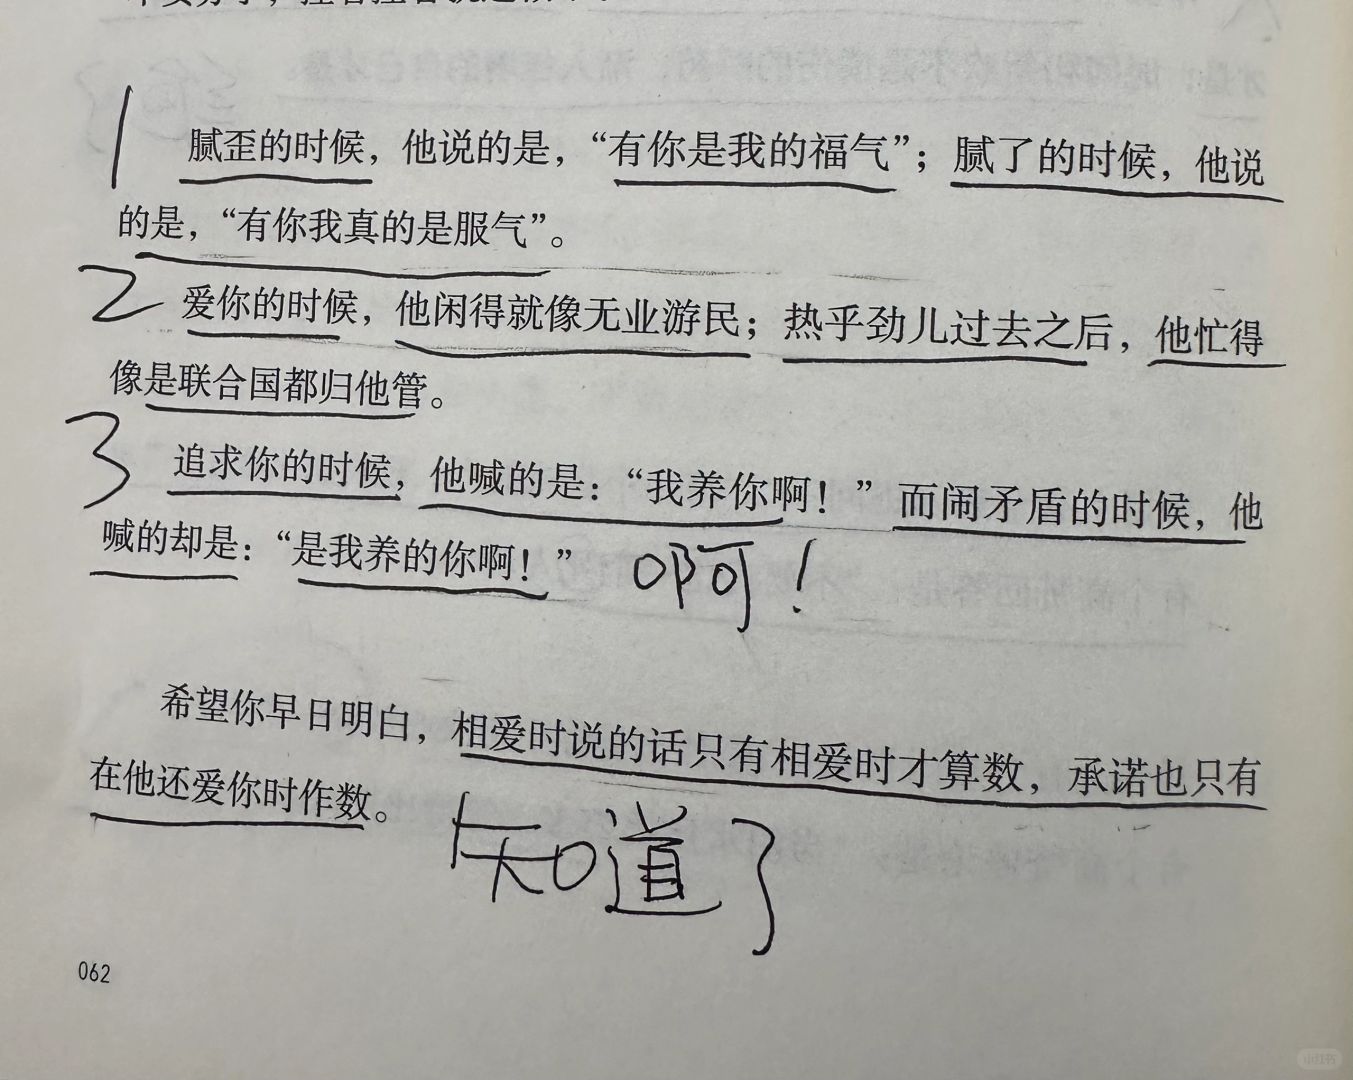 1 腻歪的时候，他说的是，“有你是我的福气”；腻了的时候，他说
的是，“有你我真的是服气”。
2 爱你的时候，他闲得就像无业游民；热乎劲儿过去之后，他忙得
像是联合国都归他管。
3 追求你的时候，他喊的是：“我养你啊！”而闹矛盾的时候，他
喊的却是：“是我养的你啊！” 啊！
希望你早日明白，相爱时说的话只有相爱时才算数，承诺也只有
在他还爱你时作数。
知道了
062
小红书